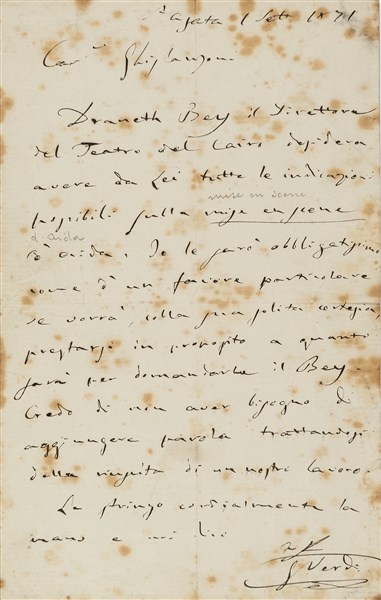 S Agata 1 Sett 1871
Car.º Ghislanzoni
Draneth Bey il Direttore
del Teatro del Cairo desidera
avere da Lei tutte le indicazioni
mise en scene
possibili sulla mise en scene
d'Aida
d'Aida. Io le sarò obbligatissimo
come d'un favore particolare
se vorrà, colla sua solita cortesia,
prestarsi in proposito a quanto
sarà per domandarle il Bey.
Credo di non aver bisogno di
aggiungere parola trattandosi
della riuscita di un nostro lavoro.
Le stringo cordialmente la
mano e mi dico
G Verdi